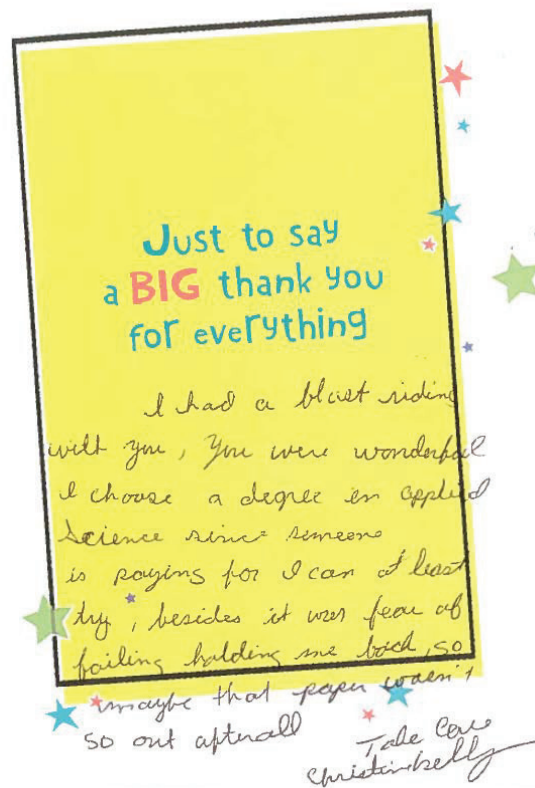 Just to say
a BIG thank you
for everything
I had a blast riding
with you, You were wonderful
I choose a degree in applied
Science since someone
is paying for I can at least
try, besides it was fear of
failing holding me back, so
maybe that paper wasn't
so out afterall
Take Care
Christine Kelly